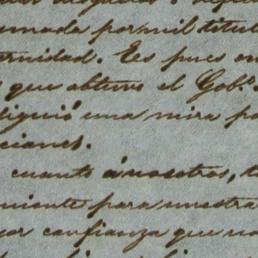 amada por mil titul
ernidad. Es pues en
que obtuvo el Gob.º
siguió una mira pa
ciones.
cuanto á nosotros, t
niente para nuestra
or confianza que no